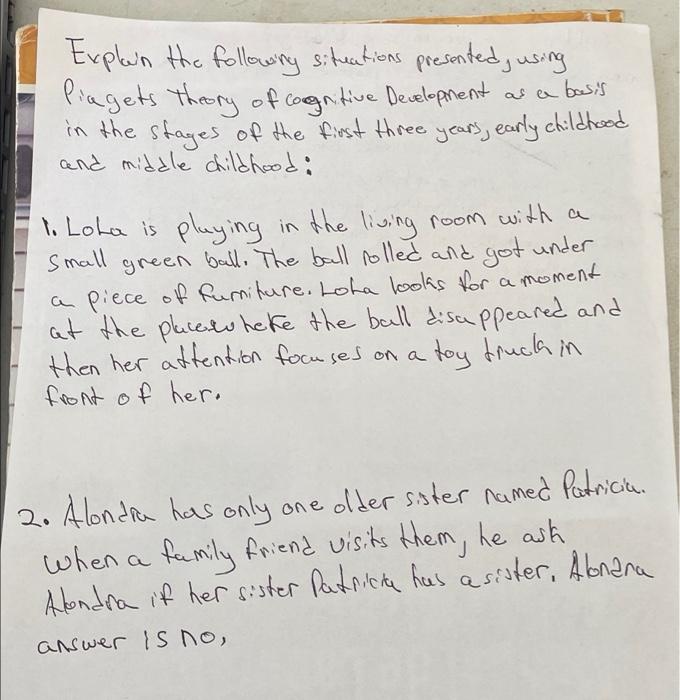 Explain the following situations presented, using
Piagets Theory of Cognitive Development as a basis
in the stages of the first three years, early childhood
and middle childhood:
1. Loha is playing in the living room with a
small green ball. The ball rolled and got under
a piece of furniture. Loha looks for a moment
at the place where the ball disappeared and
then her attention focuses on a toy truck in
front of her.
2. Alondra has only one older sister named Patricia.
when a family friend visits them, he ask
Alondra if her sister Patricia has a sister. Alondra
answer is no,